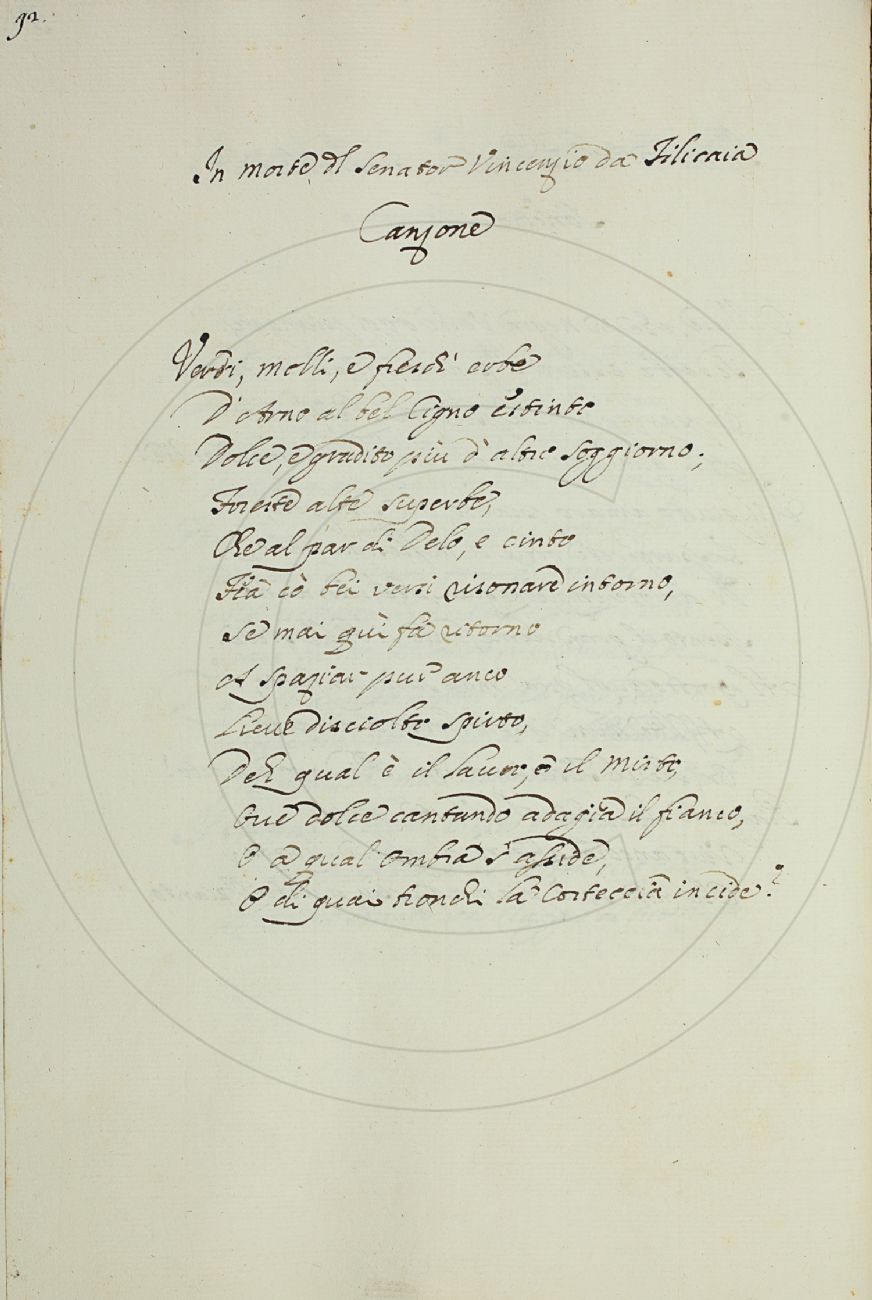 92.
In morte dl Senator Vincenzio da Filicaia
Canzone
Verdi, molli, e freschi erbe
D'Arno al bel Cigno estinto
Dolce, e gradito più d'altro soggiorno;
Foreste alte superbe,
Che al par di Delo, e cinto
Fia cò bei versi risonare intorno,
Se mai quì fà ritorno
A spaziar pur anco
Lieve disciolto spirto,
Deh qual è il lauro, e il mirto,
Ove dolce cantando adagia il fianco,
O a qual ombra s'asside,
O di quai tronchi la Corteccia incide?